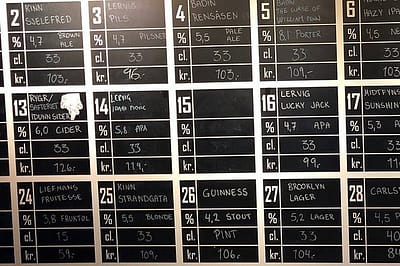 2 KINN
SJELEFRED
% 4,7 BROWN ALE
cl. 33
kr. 103,-
3 LERVIG
PILS
% 4,7 PILSNER
cl. 33
kr. 96,-
4 BÅDIN
RENSÅSEN
% 5,5 PALE ALE
cl. 33
kr. 109,-
5 BÅDIN
THE CURSE OF
WILLIAM
% 8,1 PORTER
cl. 33
kr. 103,-
6
HAZY IPA
%
cl.
kr.
13 RYGR/
% 6,0 CIDER
cl. 33
kr. 126,-
14 LERVIG
% 5,8 APA
cl. 33
kr. 114,-
15
%
cl.
kr.
16 LERVIG
LUCKY JACK
% 4,7 APA
cl. 33
kr. 99,-
17
SUNSHIN
% 4,5
cl.
kr.
24 LIEFMANS
FRUITESSE
% 3,8 FRUKTØL
cl. 25
kr. 59,-
25 KINN
STRANDGATA
% 5,5 BLONDE
cl. 33
kr. 109,-
26 GUINNESS
% 4,2 STOUT
cl. PINT
kr. 106,-
27 BROOKLYN
LAGER
% 5,2 LAGER
cl. 33
kr. 104,-
28 CARLS
% 4,5
cl. 40
kr. 89,-